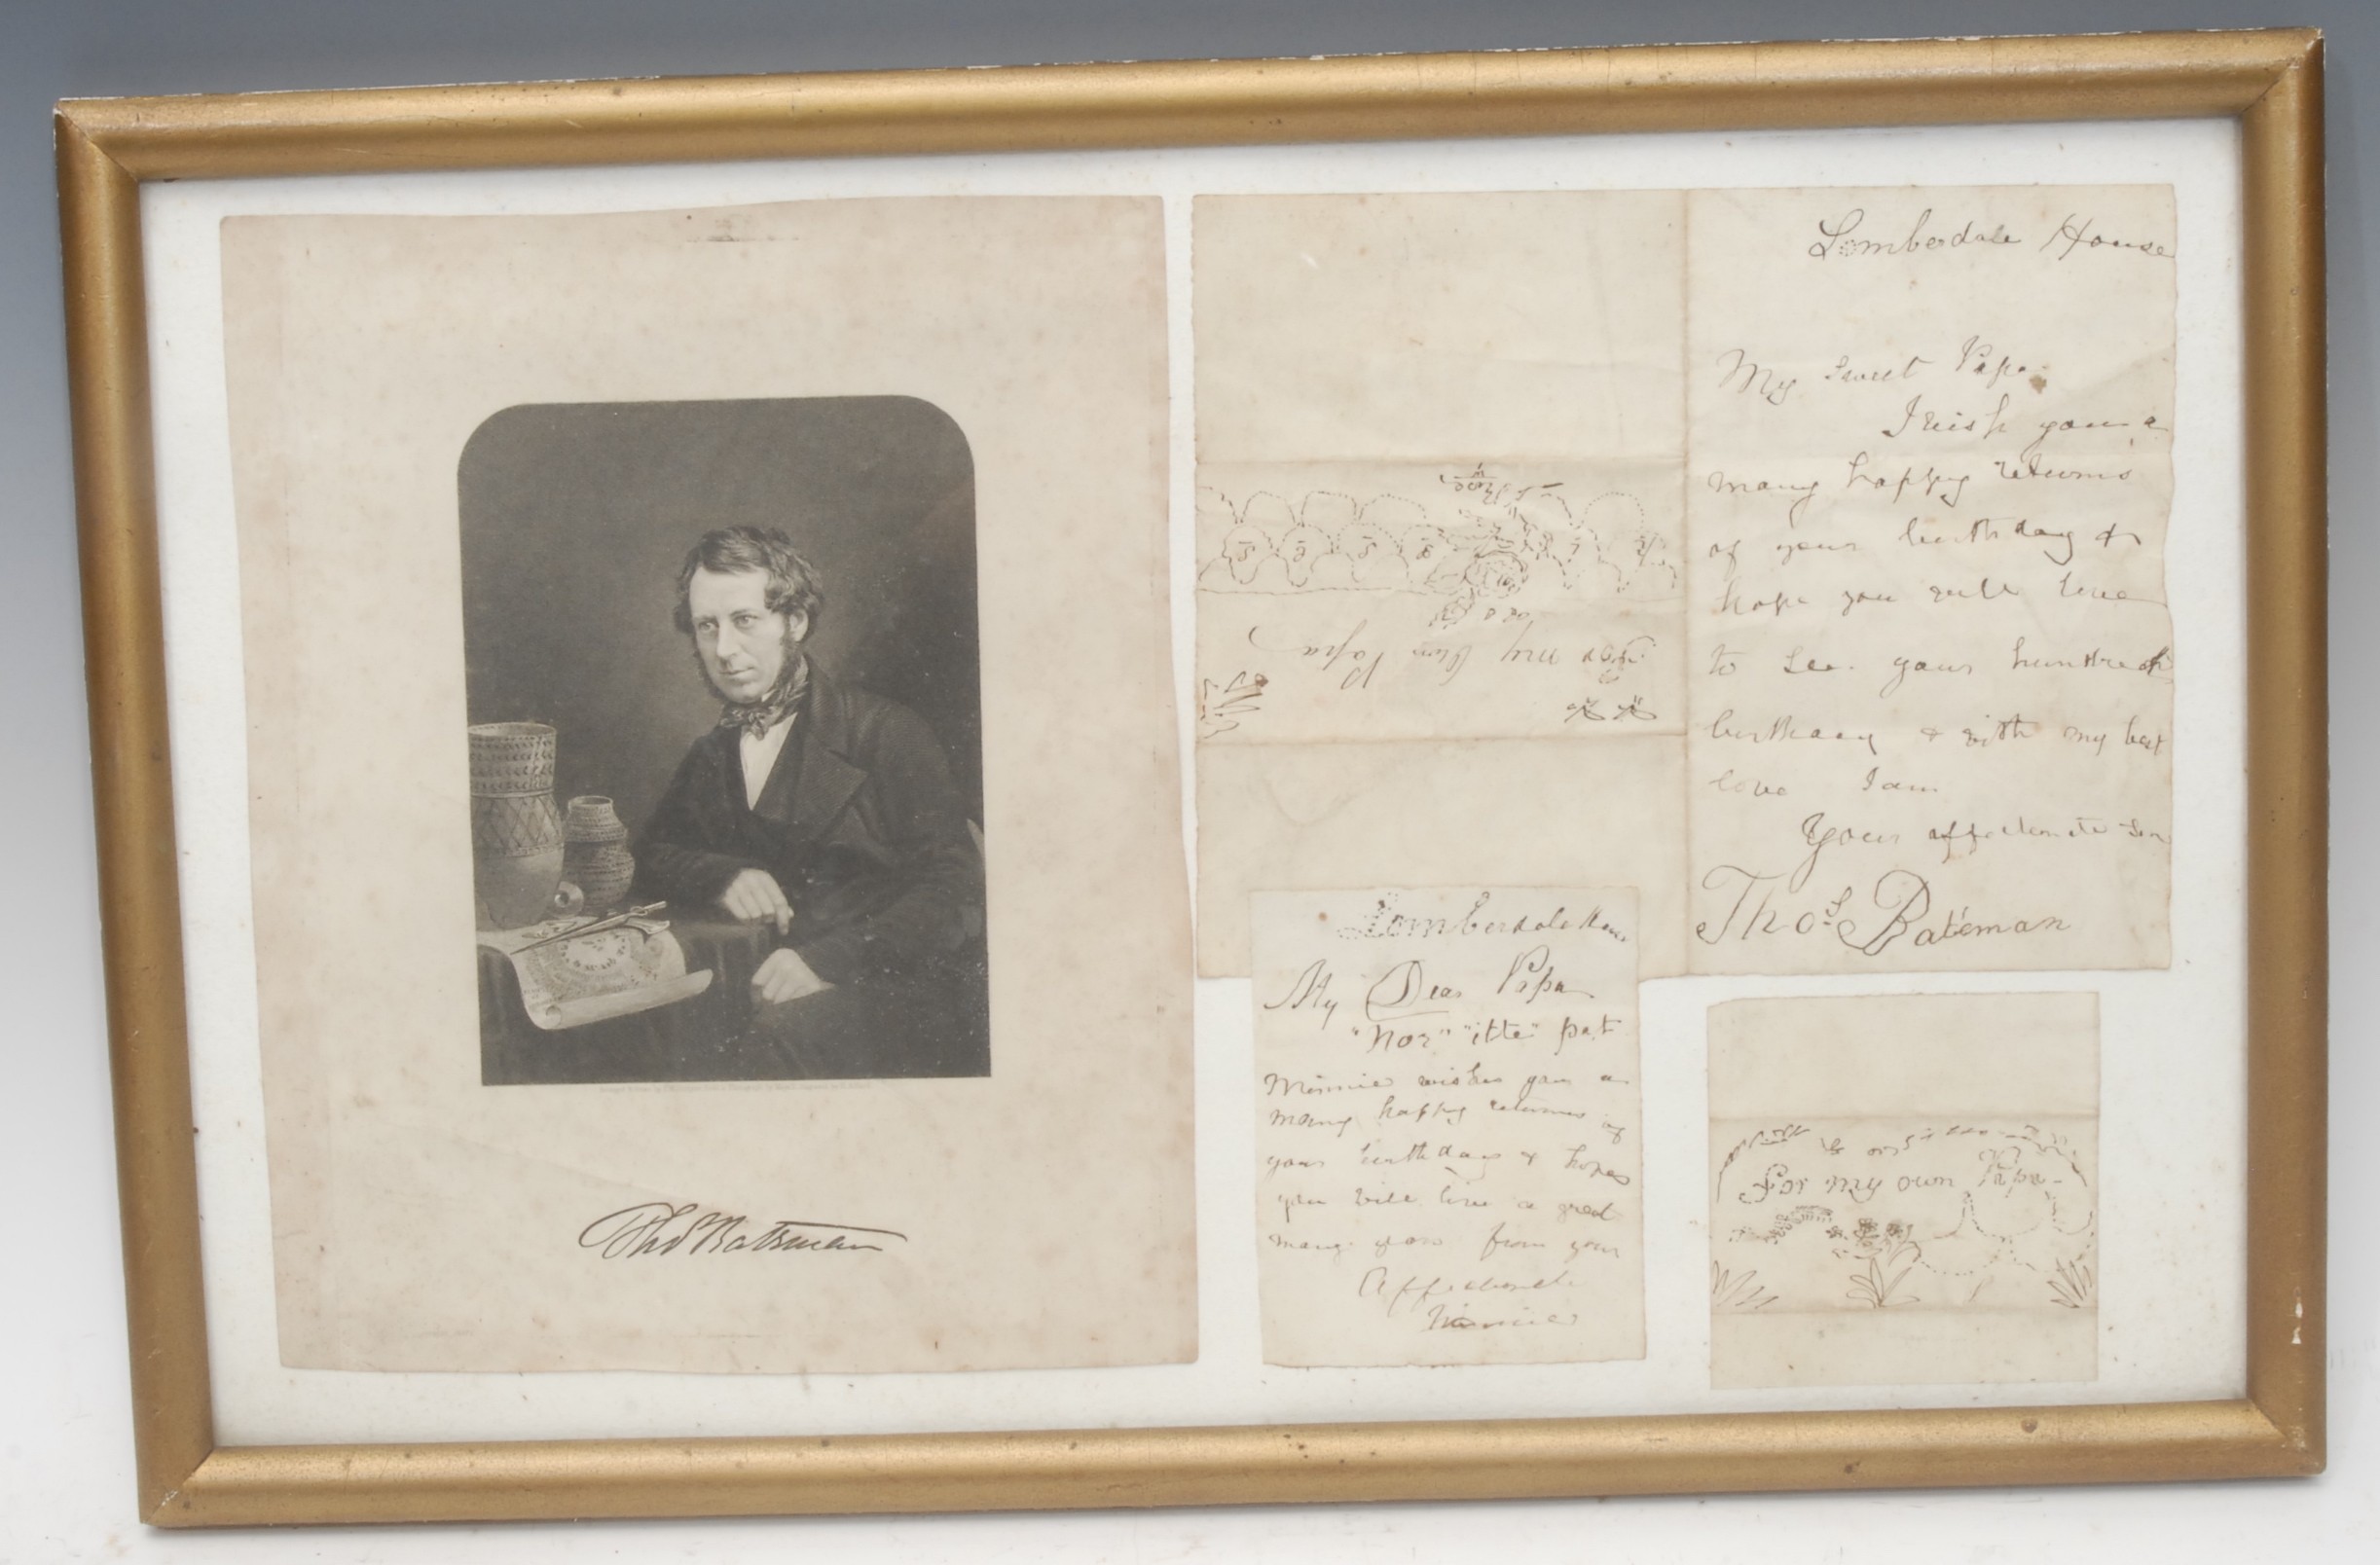 Thos Bateman
For my Own Papa
Lomberdale House
My Sweet Papa
I wish you a
many happy returns
of your birthday &
hope you will live
to see your hundredth
birthday & with my best
love I am
Your affectionate Son
Thos Bateman
Lomberdale House
My Dear Papa
"Nor" "itte" pat
Minnie wishes you a
many happy returns of
your birthday & hopes
you will live a great
many years from your
Affectionate
Minnie
For my own Papa